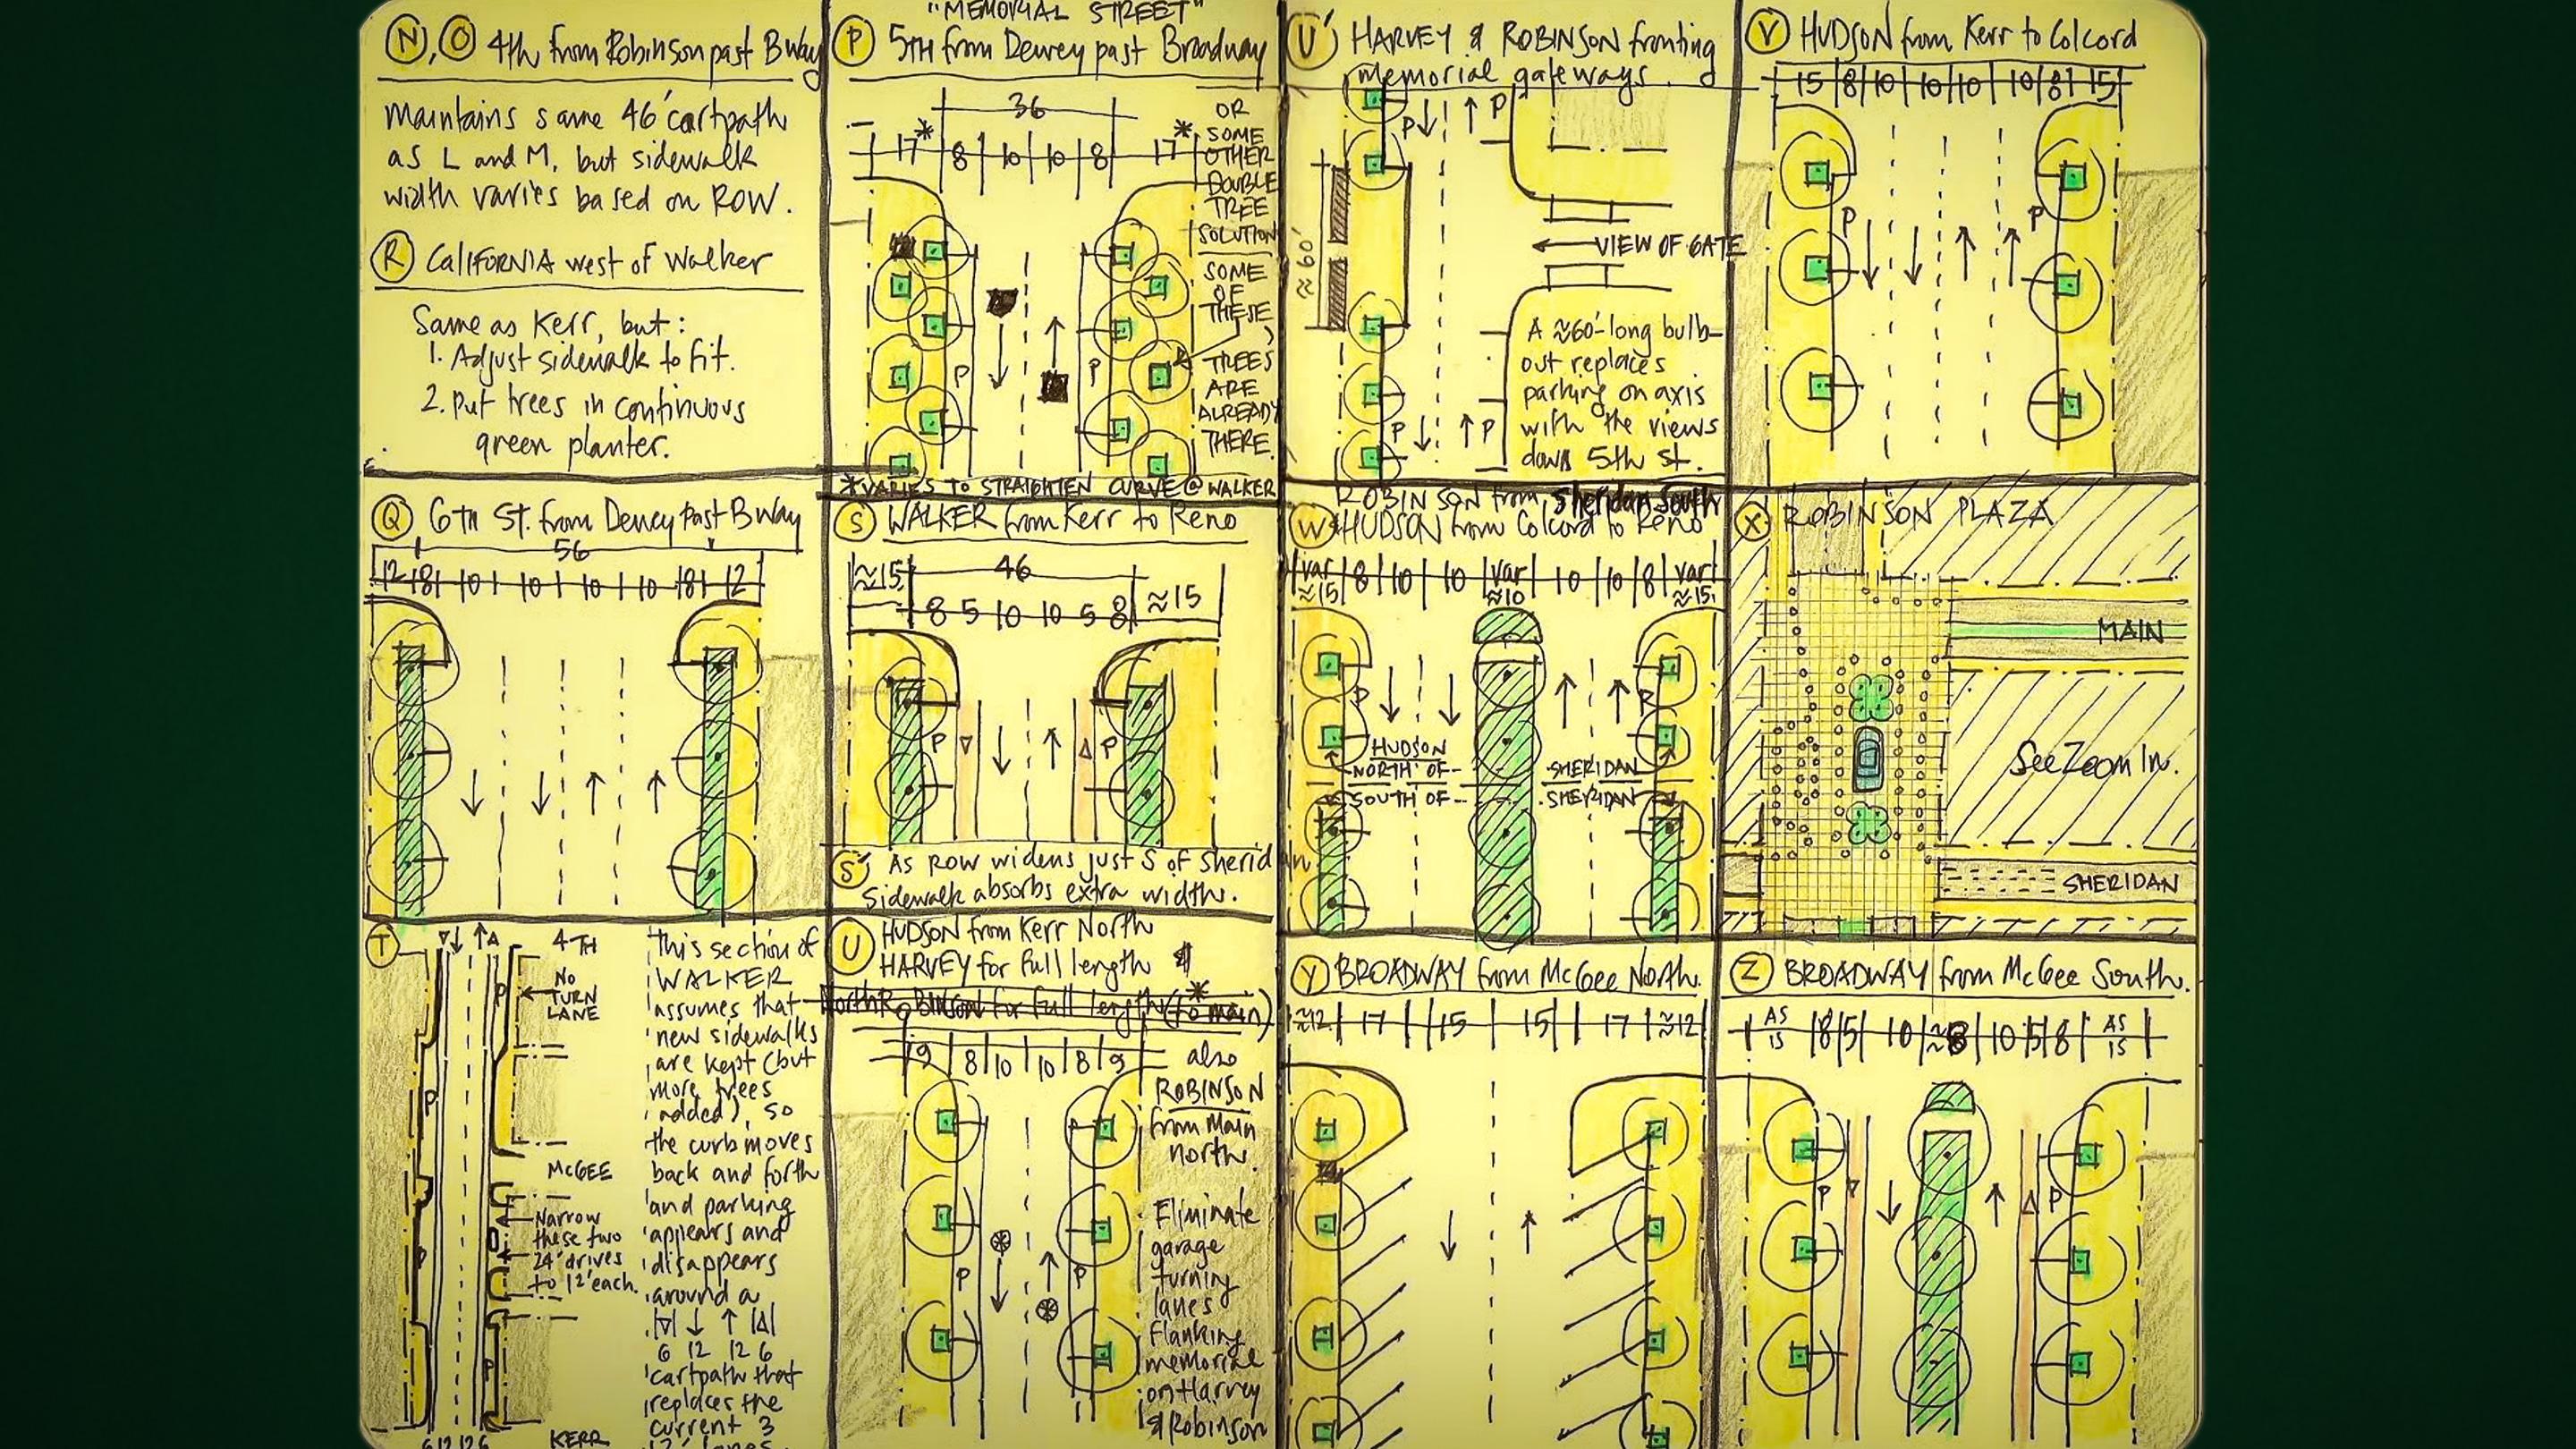 N, O 4th from Robinson past Bway
Maintains same 46' cartpath
as L and M, but sidewalk
width varies based on ROW.
R CALIFORNIA west of Walker
Same as Kerr, but:
1. Adjust sidewalk to fit.
2. Put trees in continuous
green planter.
"MEMORIAL STREET"
P 5TH from Dewey past Broadway
36
17* 8 10 10 8 17*
OR
SOME
OTHER
DOUBLE
TREE
SOLUTION
SOME
OF
THESE
TREES
ARE
ALREADY
THERE.
P P
*VARIES TO STRAIGHTEN CURVE @ WALKER
U' HARVEY & ROBINSON fronting
memorial gateways.
P P
≈60'
VIEW OF GATE
A ≈60'-long bulb-
out replaces
parking on axis
with the views
down 5th st.
P P
V HUDSON from Kerr to Colcord
15 8 10 10 10 10 8 15
P P
Q 6TH ST. from Dewey Past Bway
56
12 8 10 10 10 10 8 12
S WALKER from Kerr to Reno
≈15 46 ≈15
8 5 10 10 5 8
P P
S' As ROW widens just S of Sheridan
Sidewalk absorbs extra width.
ROBINSON from Sheridan South
W & HUDSON from Colcord to Reno
var 8 10 10 var 10 10 8 var
≈15 ≈10 ≈15
P
HUDSON
NORTH OF-- SHERIDAN
SOUTH OF-- SHERIDAN
X ROBINSON PLAZA
MAIN
See Zoom In.
SHERIDAN
T
4TH
NO
TURN
LANE
P
P
McGEE
Narrow
these two
24' drives
to 12' each.
P
P
KERR
6 12 12 6
This section of
WALKER
assumes that
new sidewalks
are kept (but
more trees
added), so
the curb moves
back and forth
and parking
appears and
disappears
around a
6 12 12 6
cartpath that
replaces the
current 3
12' lanes.
U HUDSON from Kerr North
HARVEY for full length &
North Robinson for full length* (to main)
9 8 10 10 8 9
also
ROBINSON
from Main
north.
P P
Eliminate
garage
turning
lanes
flanking
memorial
on Harvey
& Robinson
Y BROADWAY from McGee North.
≈12 17 15 15 17 ≈12
Z BROADWAY from McGee South.
AS IS 8 5 10 ≈8 10 5 8 AS IS
P P